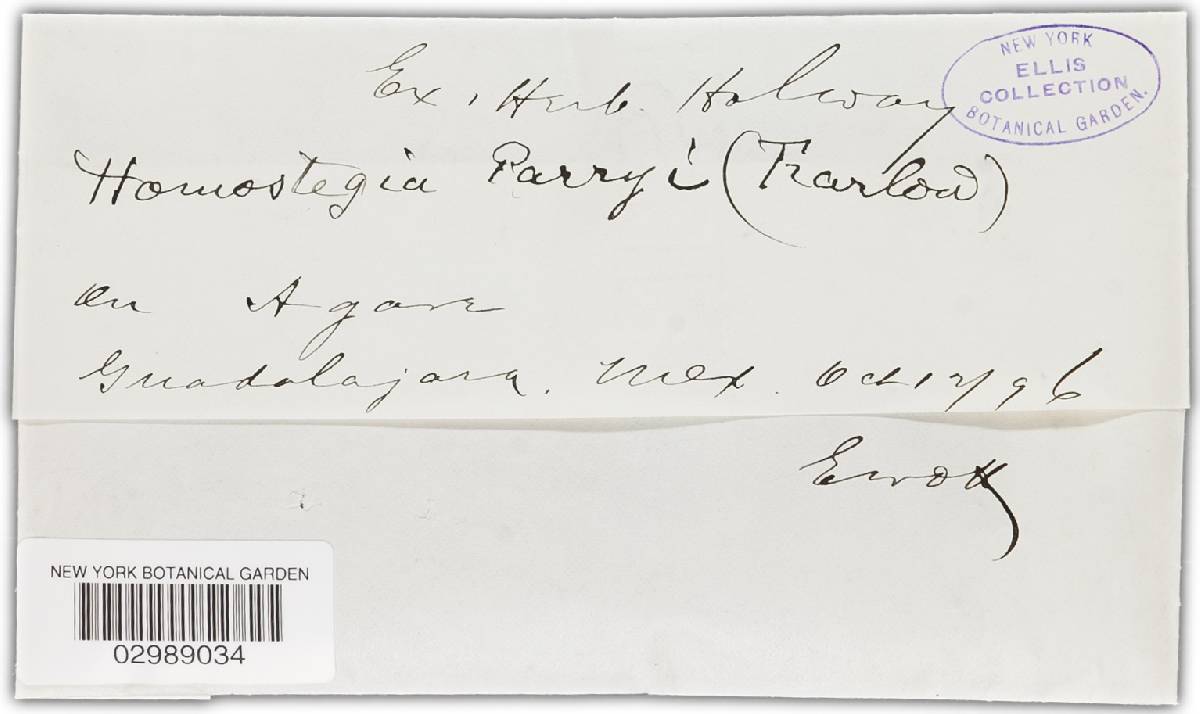 Ex. Herb. Holway
NEW YORK
ELLIS
COLLECTION
BOTANICAL GARDEN.
Homostegia Parryi (Farlow)
on Agave
Guadalajara. Mex. Oct 12/96
EWDH
NEW YORK BOTANICAL GARDEN
02989034